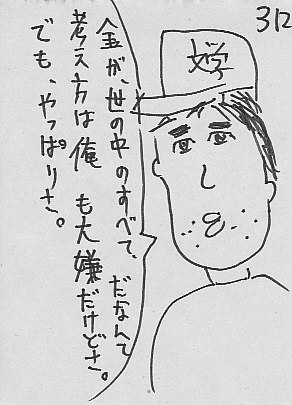 312
金が、世の中のすべて、だなんて
考え方は俺も大嫌だけどさ。
でも、やっぱりさ。